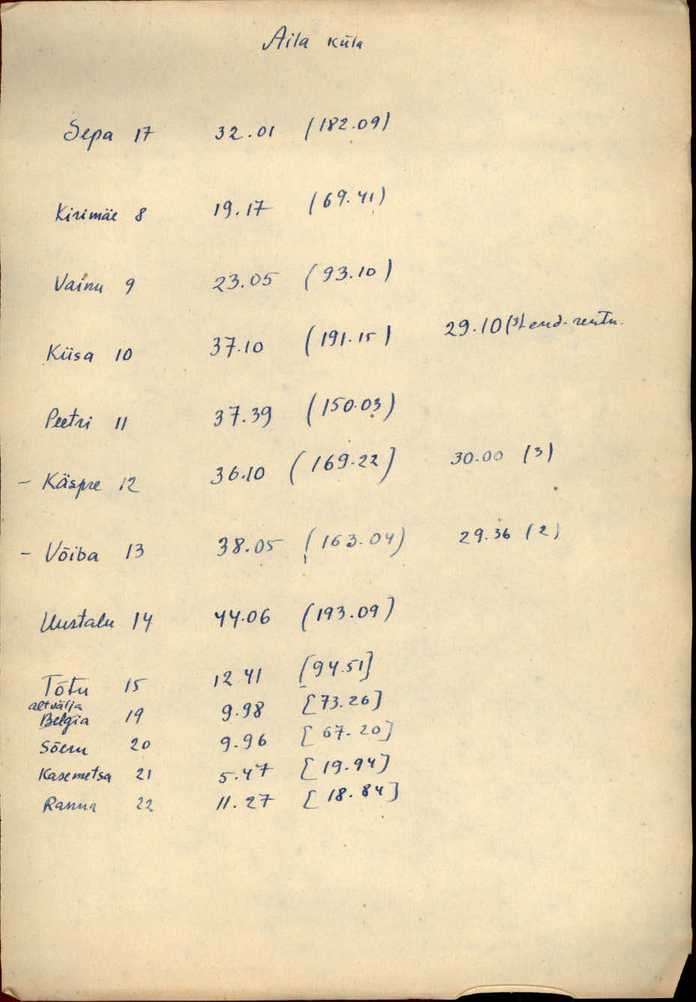 Aila küla
Sepa 17 32.01 (182.09)
Kirimäe 8 19.17 (69.41)
Vainu 9 23.05 (93.10)
Kiisa 10 37.10 (191.15) 29.10 (3) end.
Peetri 11 37.39 (150.03)
- Käspre 12 36.10 (169.22] 30.00 (3)
- Võiba 13 38.05 (163.04) 29.36 (2)
Uustalu 14 44.06 (193.09)
Tõtu 15 12.41 [94.51]
altvälja
Belgia 19 9.98 [73.26]
Sõeru 20 9.96 [67.20]
Kasemetsa 21 5.47 [19.94]
Ranna 22 11.27 [18.84]